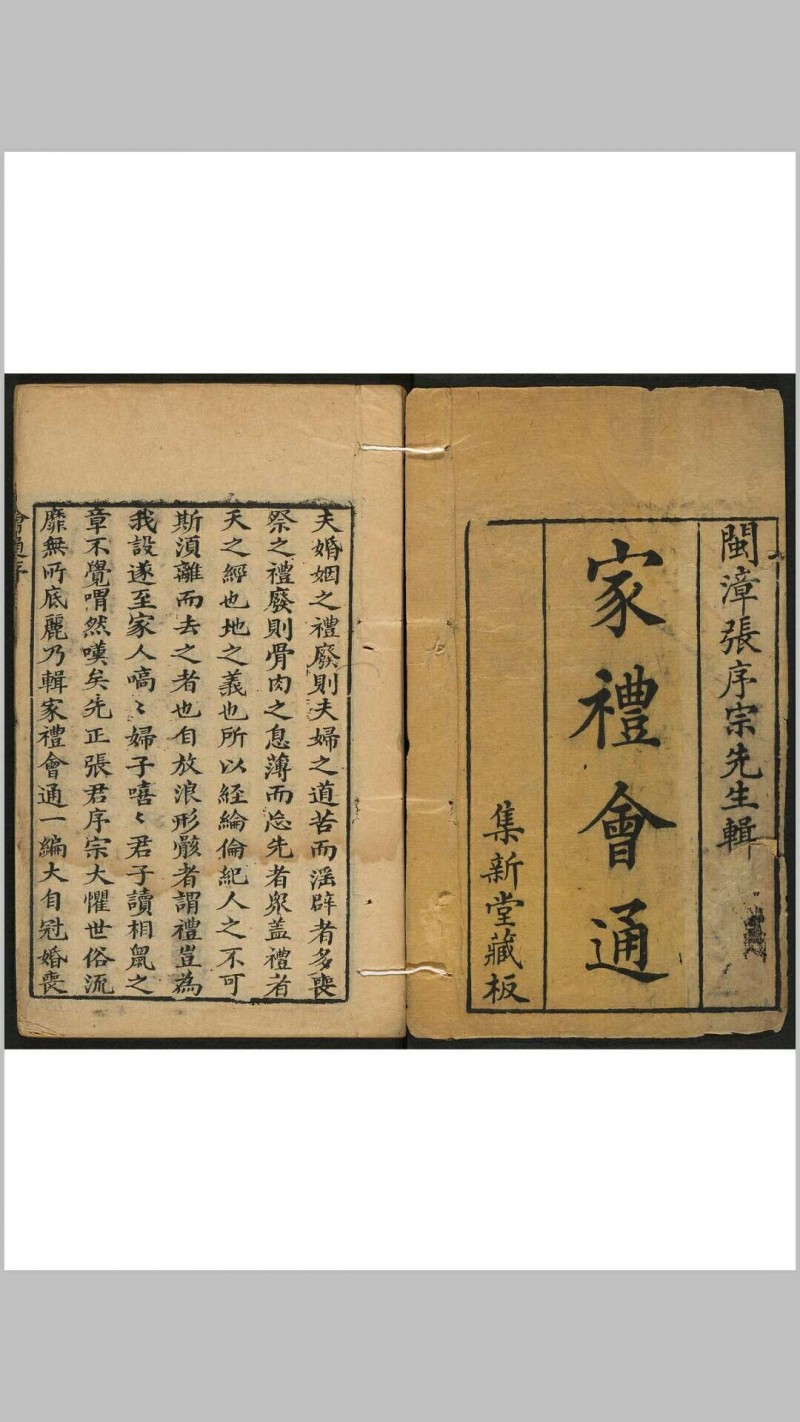 閩漳張序宗先生輯
家禮會通
集新堂藏板
夫婚姻之禮廢則夫婦之道苦而滛辟者多喪
祭之禮廢則骨肉之息薄而忘先者眾盖禮者
天之經也地之義也所以経綸倫紀人之不可
斯湏離而去之者也自放浪形骸者謂禮豈為
我設遂至家人嗃〻婦子嘻〻君子讀相鼠之
章不覺喟然嘆矣先正張君序宗大懼世俗流
靡無所底麗乃輯家禮會通一編大自冠婚喪
會通序